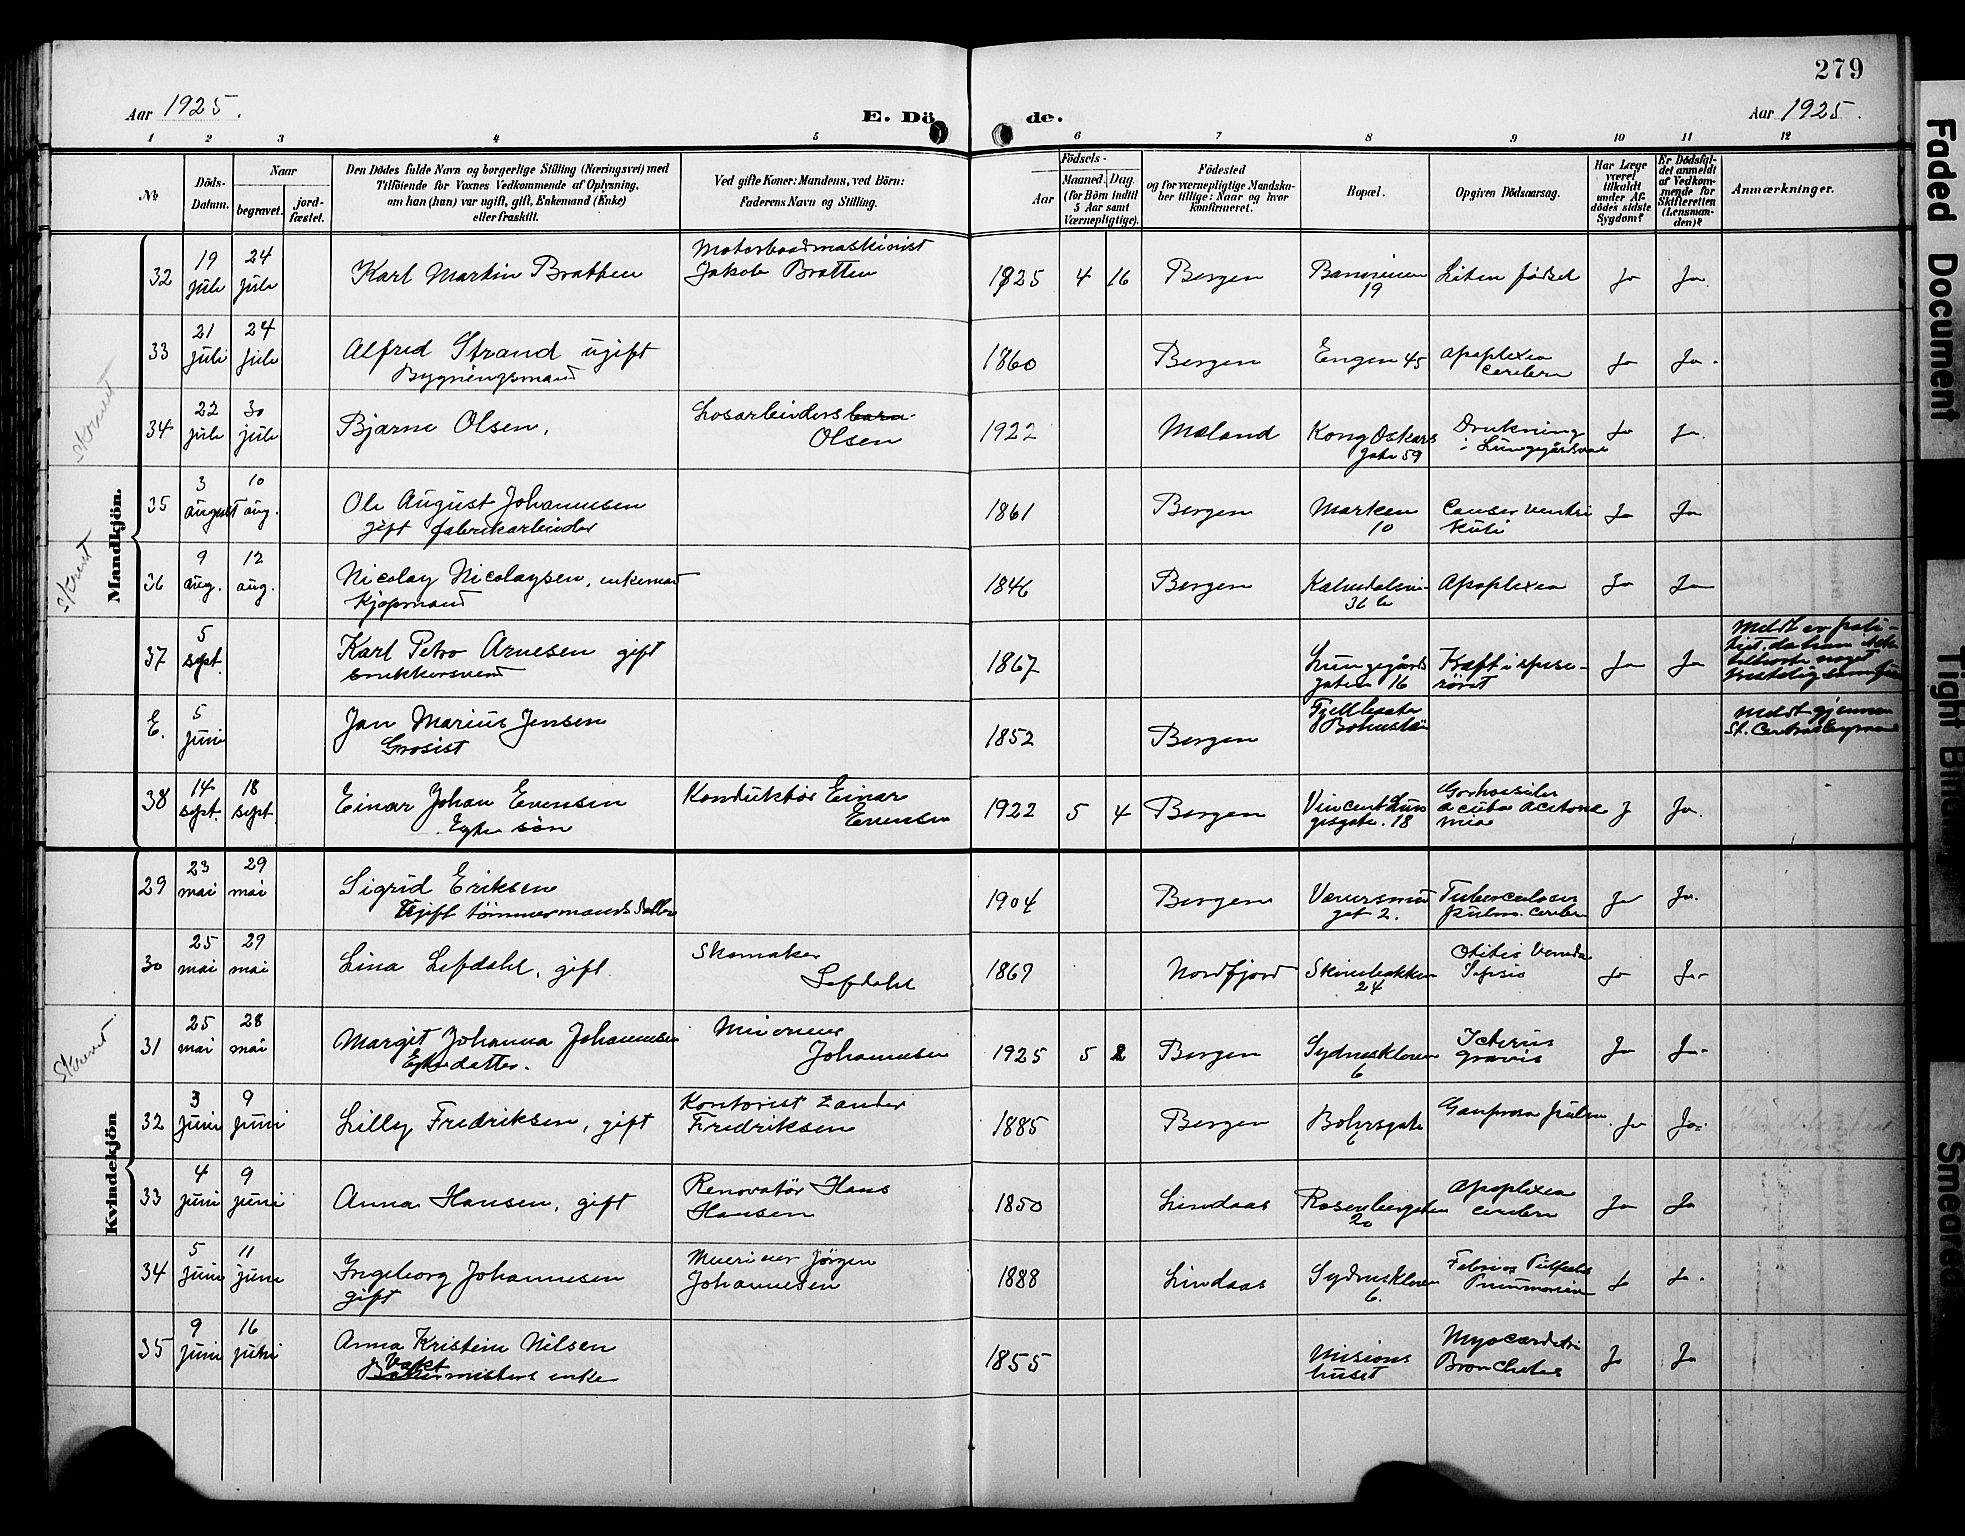 279
Aar 1925.
E. Dö
de.
Aar 1925.
1 2 3 4 5 6 7 8 9 10 11 12
№
Döds-
Datum.
Naar
begravet.
jord-
fæstet.
Den Dödes fulde Navn og borgerlige Stilling (Næringsvei) med
Tilföiende for Voxnes Vedkommende af Oplysning,
om han (hun) var ugift, gift, Enkemand (Enke)
eller fraskilt.
Ved gifte Koner: Mandens, ved Börn:
Faderens Navn og Stilling.
Födsels-
Aar
Maaned. Dag
(for Börn indtil
5 Aar samt
Værnepligtige).
Födested
og for værnepligtige Mandska-
ber tillige: Naar og hvor
konfirmeret.
Bopæl.
Opgiven Dödsaarsag.
Har Læge
været
tilkaldt
under Af-
dödes sidste
Sygdom?
Er Dödsfal-
det anmeldt
af Vedkom-
mende for
Skifteretten
(Lensman-
den)?
Anmærkninger.
Mandkjön.
32 19 juli 24 juli Karl Martin Bratten Motorbaadmaskinist
Jakob Bratten 1925 4 16 Bergen 19 Liten fødsel Jo Ja.
33 21 juli 24 juli Alfred Strand ugift
Bygningsmand 1860 Bergen Engen 45 apoplexia
cerebri Jo Ja.
Skrevet
34 22 juli 30 juli Bjarne Olsen, Løsarbeiders barn
Olsen 1922 Mæland Kong Oskars
gate 59 Drukning
i Lungegårdsvan Jo Ja.
35 3 august 10 aug. Ole August Johannesen
gift fabrikarbeider 1861 Bergen Marken
10 Cancer ventri
kuli Jo Ja
Skrevet
36 9 aug. 12 aug. Nicolay Nicolaysen, enkemand
Kjøpmand 1846 Bergen Kalvedalsvei
36 b Apoplexia Jo Ja
37 5 sept. Karl Petro Arnesen gift
snekkersvend 1867 Lungegårds
gaten 16 Kræft i spise-
røret Ja Ja Meldt av poli-
tiet, da han ikke
tilhørte noget
kristelig samfun
E. 5 juni Jan Marius Jensen
Grosist 1852 Bergen Fjellbacka
Bohuslän Meldt gjennem
St. Centralbyraa
38 14 sept. 18 sept. Einar Johan Evensen
Egte søn Konduktør Einar
Evensen 1922 5 4 Bergen Vincent Lun
gesgate. 18 acuta Acetone
mia J Ja.
Kvindekjön
29 23 mai 29 mai Sigrid Eriksen
Ugift tømmermands datter 1904 Bergen gat 2. Tuberculosis
pulm. cerebri Ja Ja.
30 25 mai 29 mai Lina Lefdahl, gift. Skomaker
Lefdahl 1867 Nordfjord Skivebakken
24 Otitis
Sepsis Jo Ja
Skrevet
31 25 mai 28 mai Margit Johanna Johannesen
Egte datter. Minerer
Johannesen 1925 5 2 Bergen Sydneskleven
6 Icterus
gravis Ja Ja.
32 3 juni 9 juni Lilly Fredriksen, gift Kontorist Zander
Fredriksen 1885 Bergen Bohrsgate
6 Ja Ja.
33 4 juni 9 juni Anna Hansen, gift Renovatør Hans
Hansen 1850 Lindaas Rosenbergaten
20 Apoplexia
cerebri Ja Ja
34 5 juni 11 juni Ingeborg Johannesen
gift Jørgen
Johannesen 1888 Lindaas Sydneskleven
6. Jo Ja.
35 9 juni 16 juni Anna Kristine Nilsen
Vakt
mesters enke 1855 Misions
huset Myocarditi
Bronchites Jo Ja
Faded Document
Tight Binding
Smeared